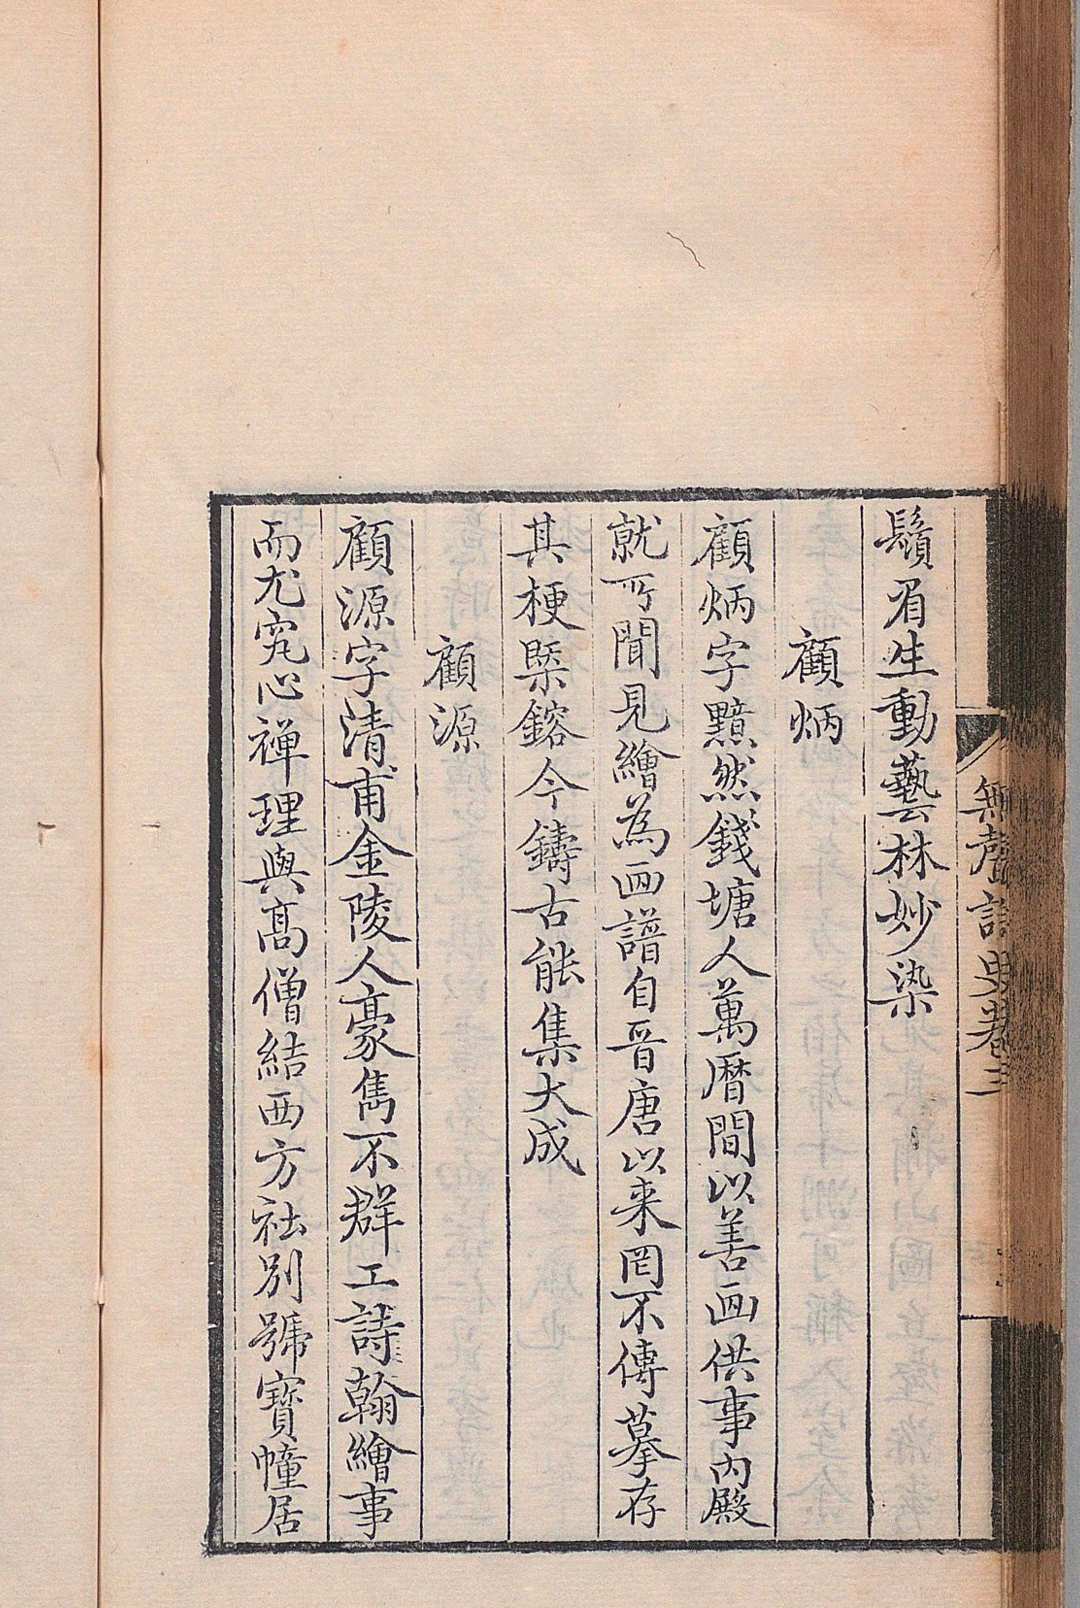 無聲詩史卷三
鬚眉生動藝林妙染
顧炳
顧炳字黯然錢塘人萬曆間以善画供事內殿
就所聞見繪為画譜自晉唐以来罔不傳摹存
其梗槩鎔今鑄古能集大成
顧源
顧源字清甫金陵人豪雋不群工詩翰繪事
而尤究心禪理與高僧結西方社別號寶幢居